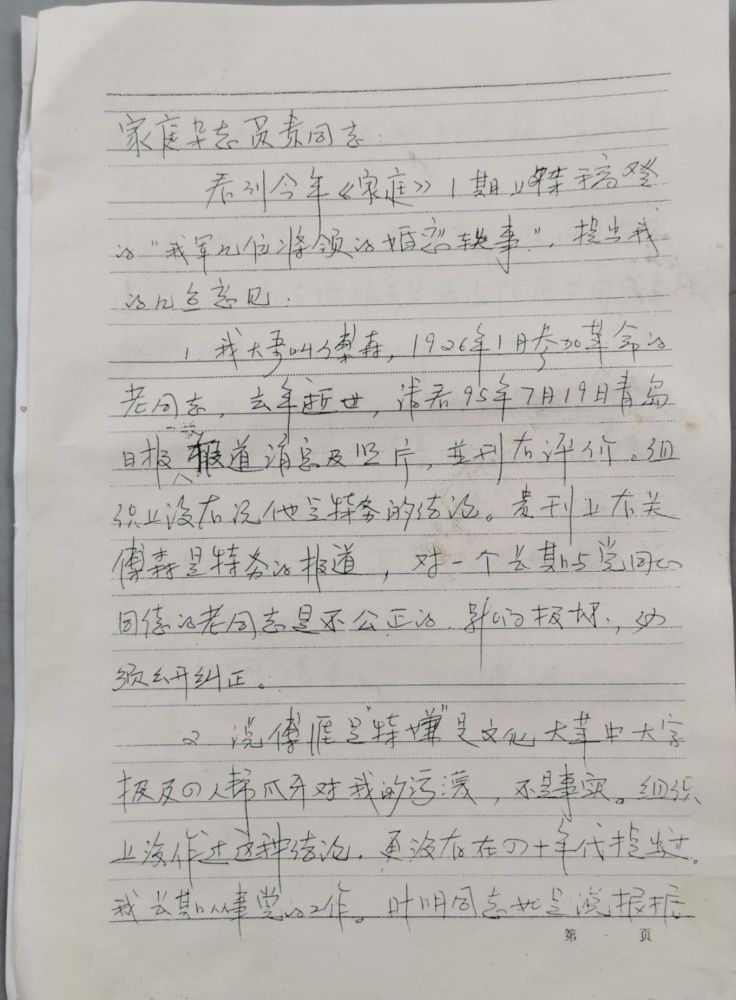 家庭杂志负责同志：
看到今年《家庭》1期上特稿登
的"我军几位将领的婚恋轶事"，提出我
的几点意见．
1. 我大哥叫傅森，1926年1月参加革命的
老同志，去年逝世，请看95年7月19日青岛
日报一放报道消息及照片，并刊有评价。组
织上没有说他是特务的结论。贵刊上有关
傅森是特务的报道，对一个长期与党同心
同德的老同志是不公正的．影响极坏，必
须公开纠正。
2. 说傅涯是"特嫌"是文化大革中大字
报及四人帮爪牙对我的污蔑，不是事实。组织
上没作过这种结论．更没有在四十年代提出过。
我长期从事党的工作。时明同志也是说根据
第 页